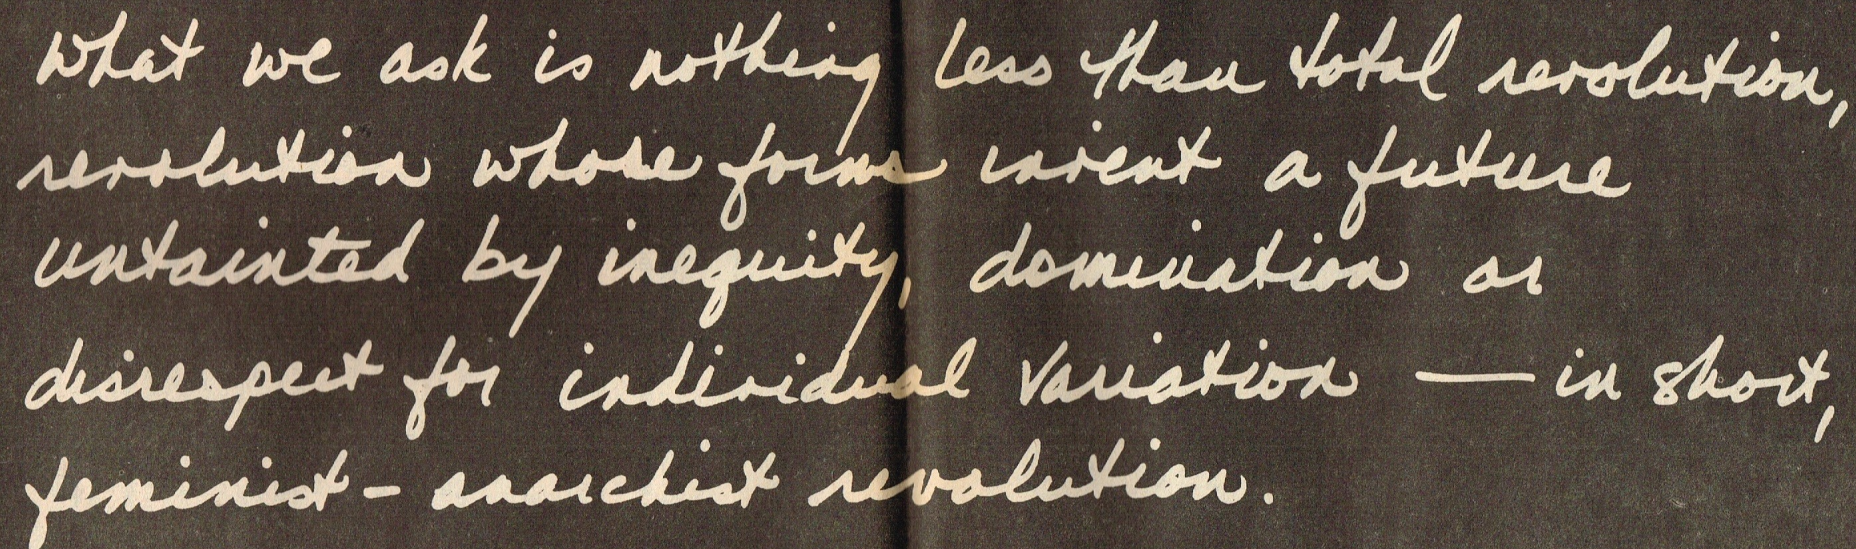 What we ask is nothing less than total revolution,
revolution whose forms invent a future
untainted by inequity, domination or
disrespect for individual variation — in short,
feminist-anarchist revolution.